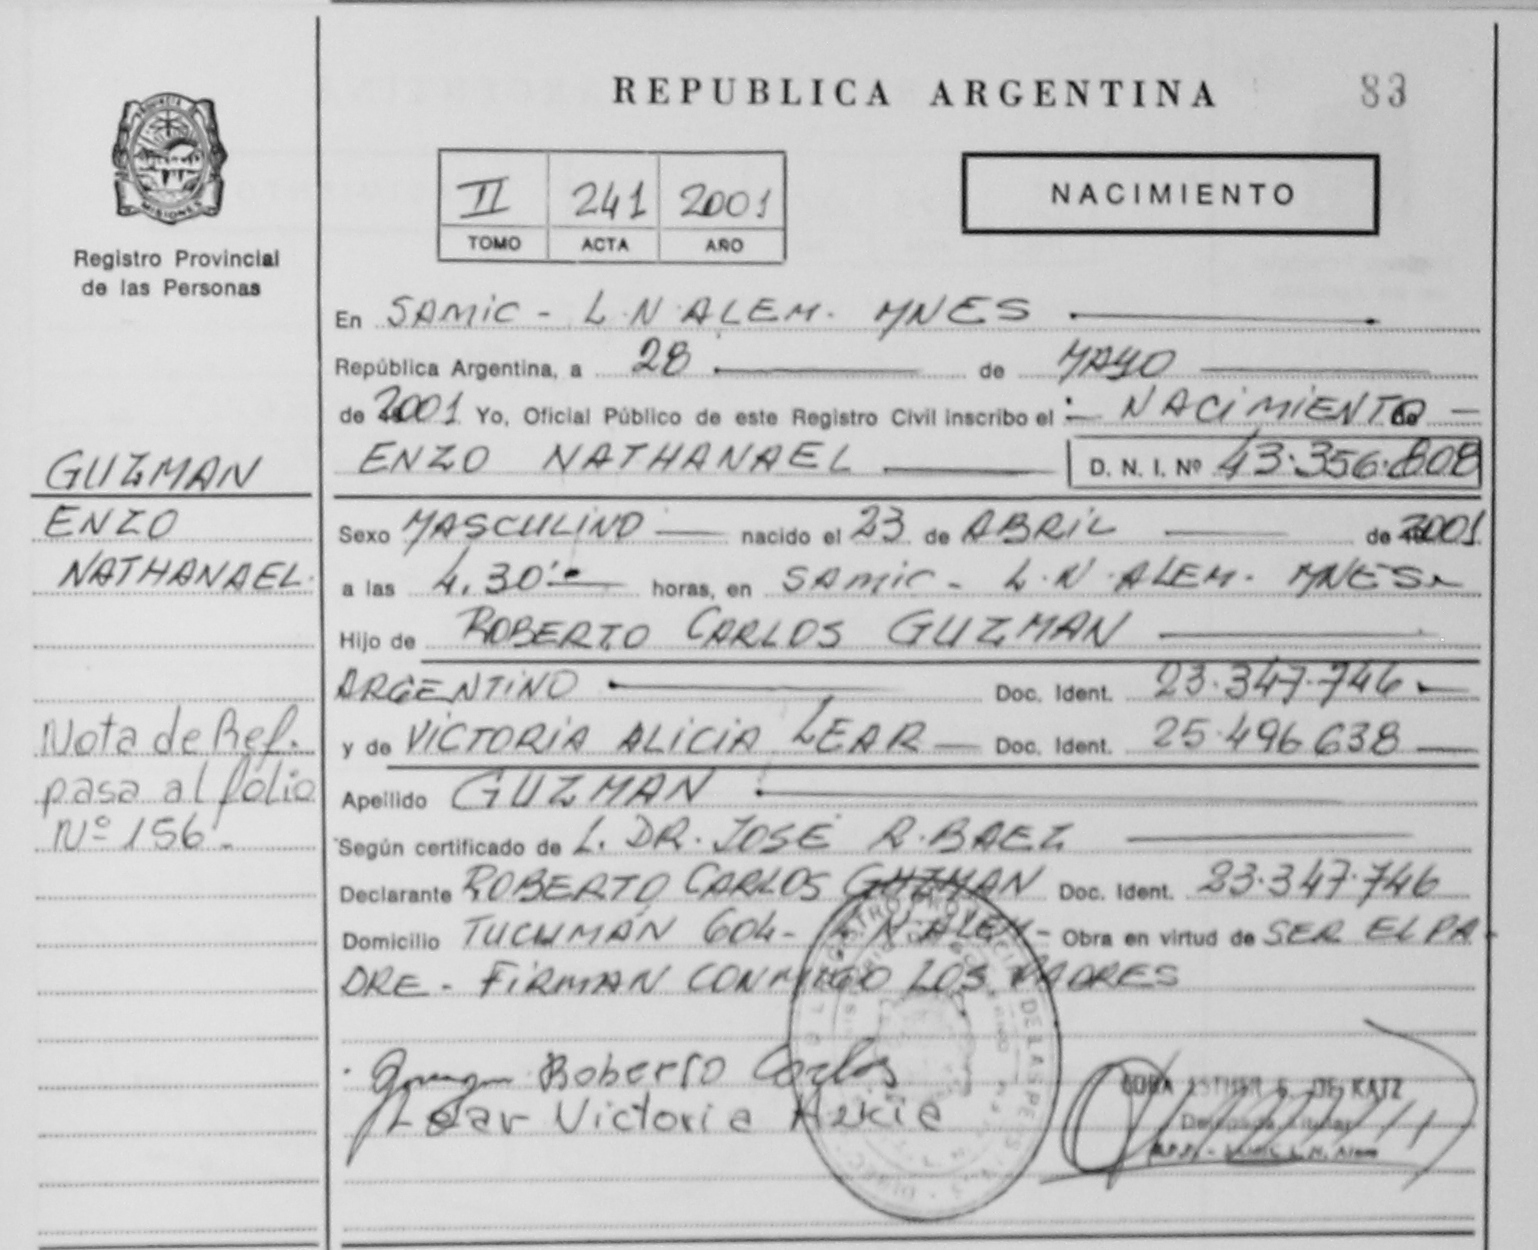 REPUBLICA ARGENTINA 83
PROVINCIA
MISIONES
Registro Provincial
de las Personas
II 241 2001
TOMO ACTA AÑO
NACIMIENTO
En SAMIC - L.N.ALEM. MNES
República Argentina, a 28 de MAYO
de 2001 Yo, Oficial Público de este Registro Civil inscribo el NACIMIENTO de
ENZO NATHANAEL D. N. I. Nº 43.356.808
GUZMAN
ENZO
NATHANAEL.
Sexo MASCULINO nacido el 23 de ABRIL de 2001
a las 4,30 horas, en SAMIC - L.N.ALEM. MNES
Hijo de ROBERTO CARLOS GUZMAN
ARGENTINO Doc. Ident. 23.347.746
y de VICTORIA ALICIA LEAR Doc. Ident. 25.496638
Nota de Ref.
pasa al folio
Nº 156.
Apellido GUZMAN
Según certificado de L. DR. JOSÉ R. BAEZ
Declarante ROBERTO CARLOS GUZMAN Doc. Ident. 23.347.746
Domicilio TUCUMÁN 604- L.N.ALEM- Obra en virtud de SER EL PA
DRE - FIRMAN CONMIGO LOS PADRES
Roberto Carlos
Lear Victoria
ESTHER DE KATZ